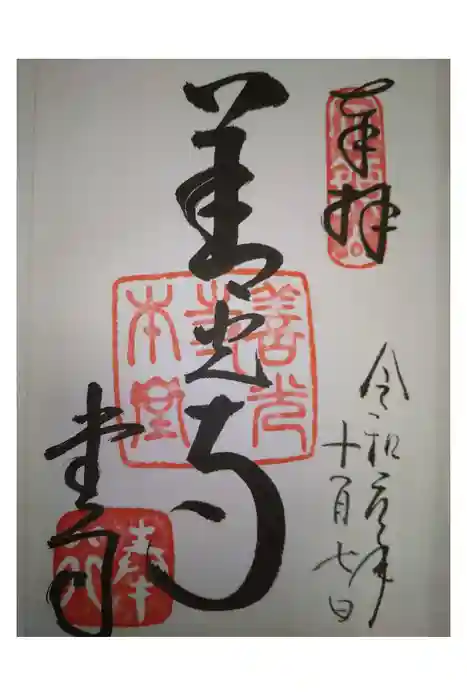 奉拝
令和元年
十一月七日
善光寺
善光
寺
本堂
堂司